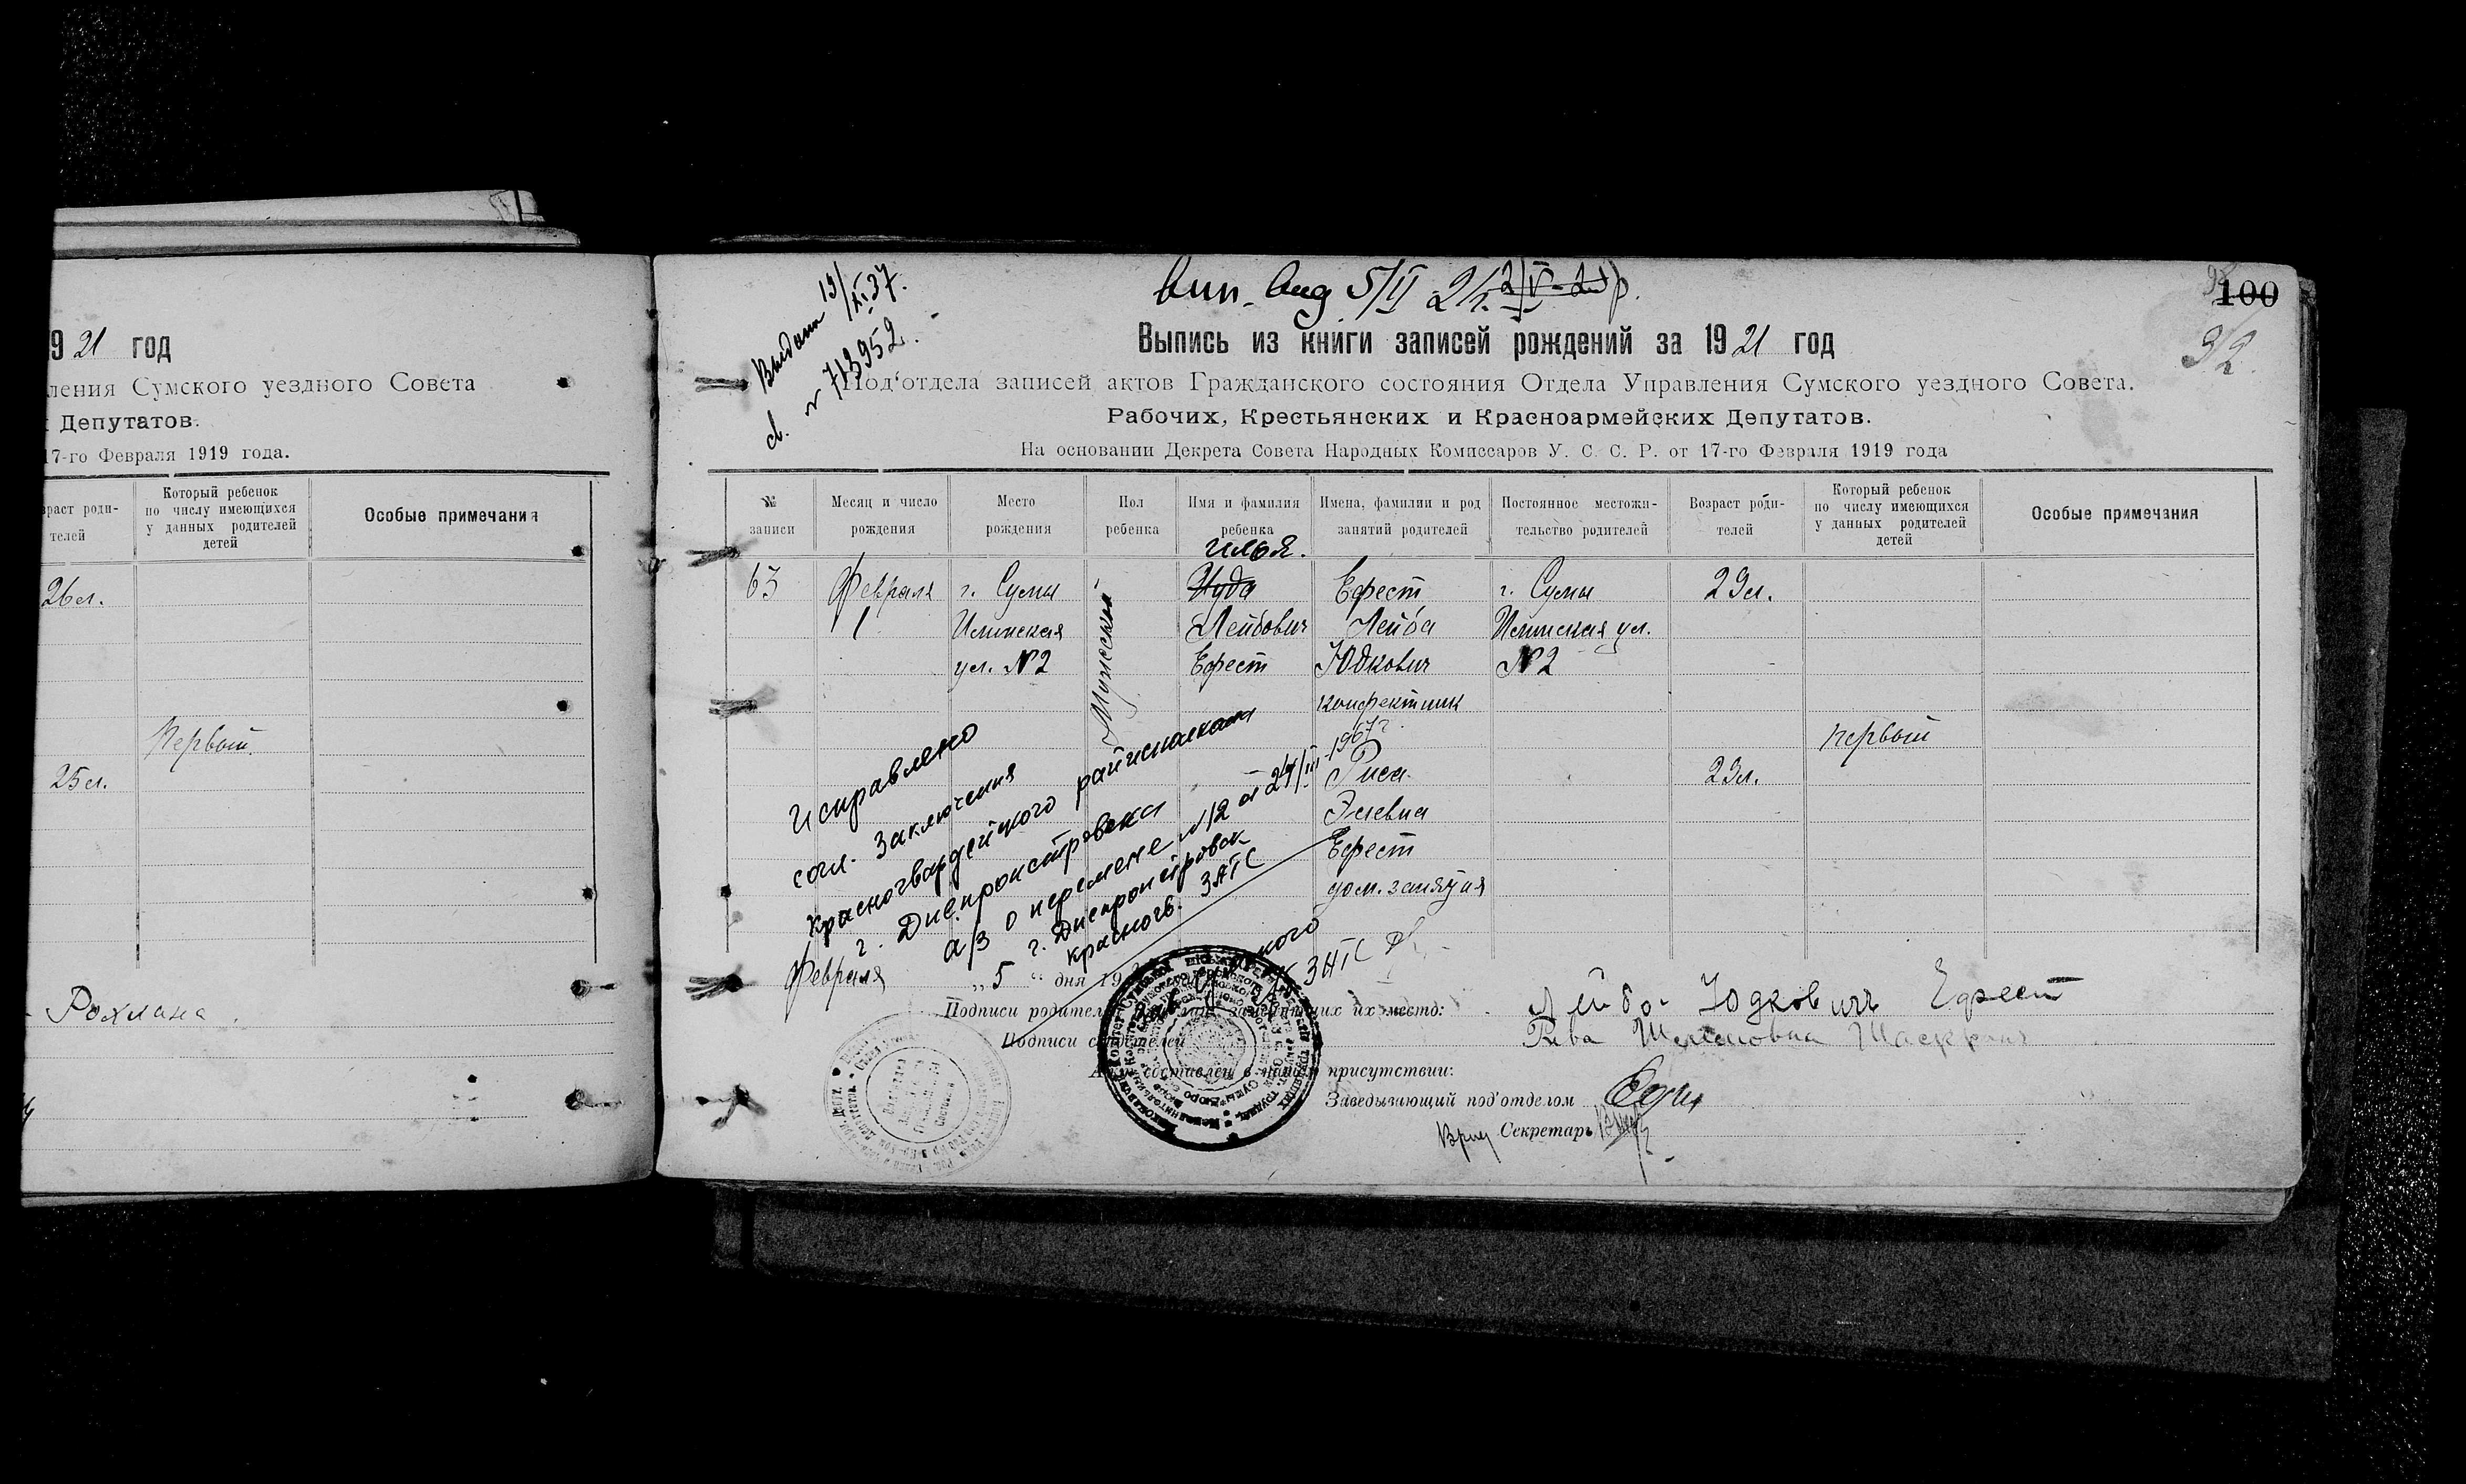 1921 год
ления Сумского уездного Совета
Депутатов.
17-го Февраля 1919 года.
раст роди-
телей
Который ребенок
по числу имеющихся
у данных родителей
детей
Особые примечания
26 л.
Первый.
25 л.
Рохлина
Выдана 13/XI.37.
№ 713952.
100
32
Выпись из книги записей рождений за 1921 год
Под'отдела записей актов Гражданского состояния Отдела Управления Сумского уездного Совета.
Рабочих, Крестьянских и Красноармейских Депутатов.
На основании Декрета Совета Народных Комиссаров У. С. С. Р. от 17-го Февраля 1919 года
№
записи
Месяц и число
рождения
Место
рождения
Пол
ребенка
Имя и фамилия
ребенка
Имена, фамилии и род
занятий родителей
Постоянное местожи-
тельство родителей
Возраст роди-
телей
Который ребенок
по числу имеющихся
у данных родителей
детей
Особые примечания
63
Февраля
1
г. Сумы
Илинская
ул. №2
Мужской
Илья.
Иуда
Лейбович
Ефест
Ефест
Лейба
Юдкович
конфектник
Риса
Элевна
Ефест
дом. занятия
г. Сумы
Илинская ул.
№2
29 л.
23 л.
первый
Исправлено
согл. заключения
Красногвардейского райисполкома
г. Днепропетровска
а/з о перемене №12 от 24/III-1967 г.
г. Днепропетровск
Красногв. ЗАГС
Февраля „5“ дня 19
Подписи родителей
их место:
Лейба Юдковичъ Ефест
Подписи свидетелей
Рива
Акт составлен в нашем присутствии:
Заведывающий под'отделом
Врид Секретарь